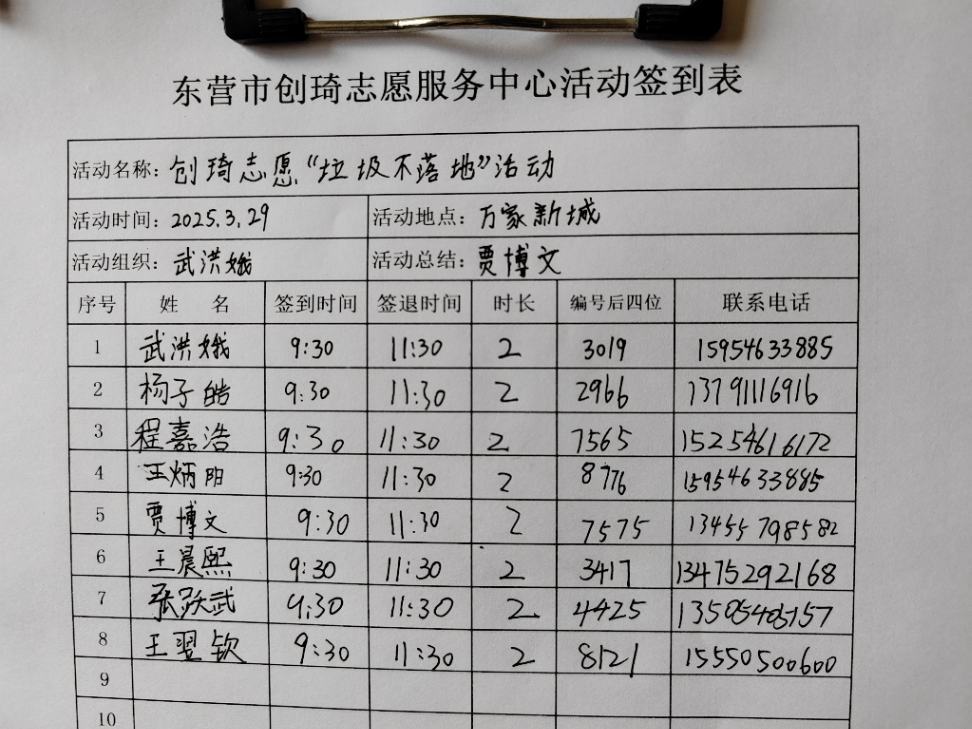 东营市创琦志愿服务中心活动签到表
活动名称：创琦志愿“垃圾不落地”活动
活动时间：2025.3.29 活动地点：万家新城
活动组织：武洪娥 活动总结：贾博文
序号 姓名 签到时间 签退时间 时长 编号后四位 联系电话
1 武洪娥 9:30 11:30 2 3019 15954633885
2 杨子皓 9:30 11:30 2 2966 13791116916
3 程嘉浩 9:30 11:30 2 7565 15254616172
4 王炳阳 9:30 11:30 2 8776 15954633885
5 贾博文 9:30 11:30 2 7575 13455798582
6 王晨熙 9:30 11:30 2 3417 13475292168
7 张跃武 9:30 11:30 2 4425 13505405157
8 王翌钦 9:30 11:30 2 8121 15550500600
9
10